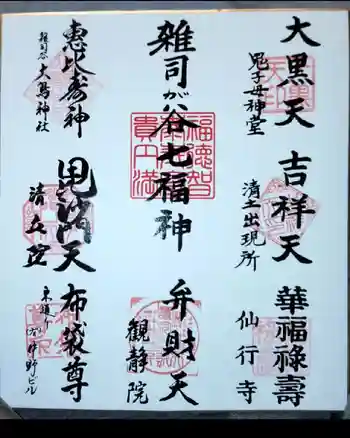 大黒天
鬼子母神堂
吉祥天
清土出現所
華福禄壽
仙行寺
雑司が谷七福神
福徳智
貴円満
弁財天
観静院
恵比寿神
雑司谷
大鳥神社
毘沙門天
清立院
布袋尊
東通り
中野ビル